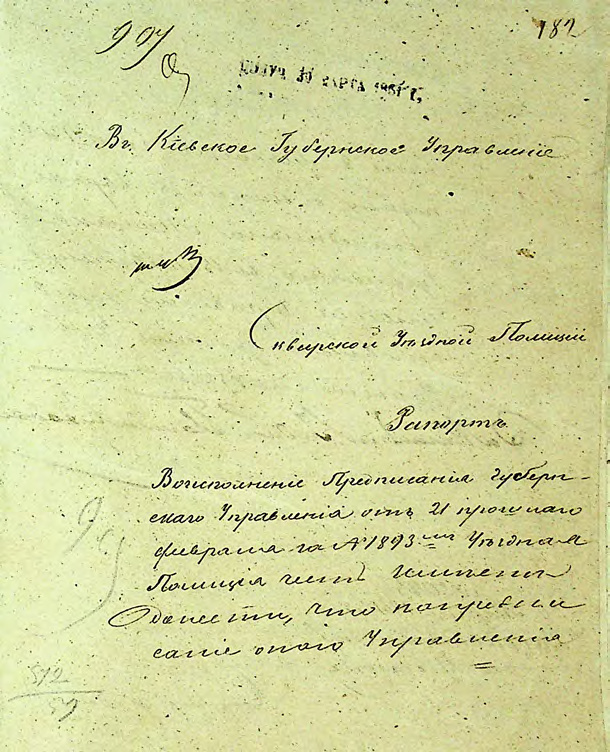 909
182
ПОЛУЧ. 30 МАРТА 186
Въ Кіевское Губернское Управленіе
Сквирской Уѣздной Полиціи
Рапортъ
Воисполненіе Предписанія Губерн-
скаго Управленія отъ 21 прошлаго
февраля за № 1893 Уѣздная
Полиція честь имѣетъ
донести, что
саніе оного Управленія
512
59